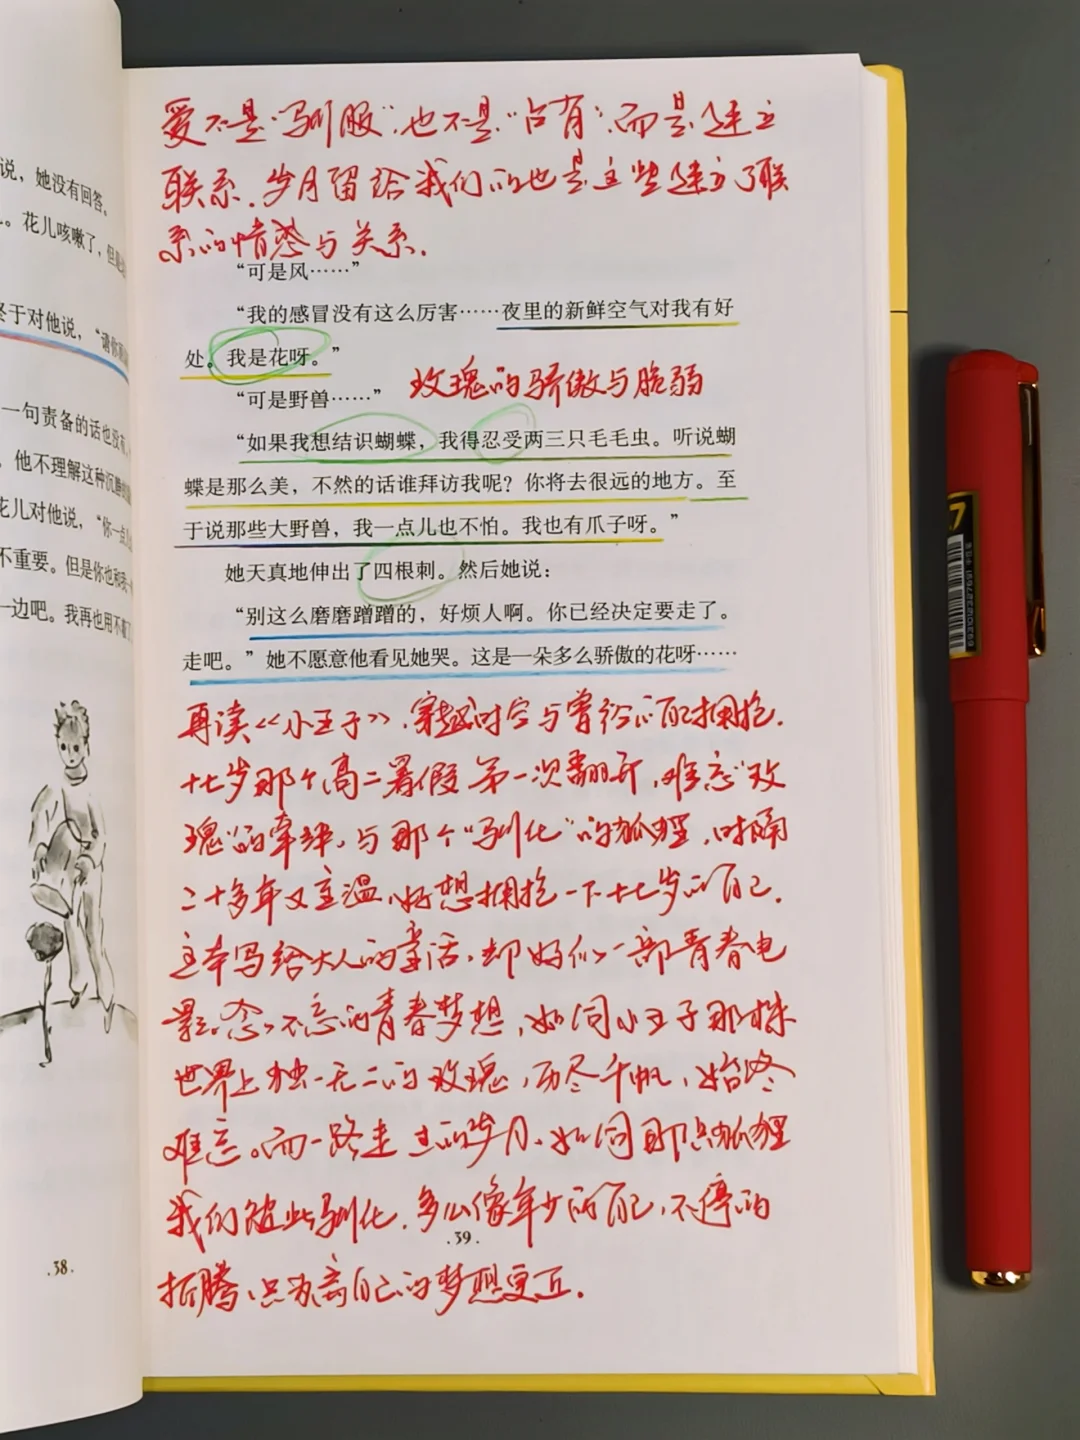 说，她没有回答。
花儿咳嗽了，但是
终于对他说，“请你
一句责备的话也没有，
他不理解这种沉
花儿对他说，“你一点
不重要。但是你也和我一
一边吧。我再也用不着了
.38.
爱不是“驯服”，也不是“占有”，而是建立
联系，岁月留给我们的也是这些建立了联
系的情感与关系。
“可是风……”
“我的感冒没有这么厉害……夜里的新鲜空气对我有好
处。我是花呀。”
“可是野兽……” 玫瑰的骄傲与脆弱
“如果我想结识蝴蝶，我得忍受两三只毛毛虫。听说蝴
蝶是那么美，不然的话谁拜访我呢？你将去很远的地方。至
于说那些大野兽，我一点儿也不怕。我也有爪子呀。”
她天真地伸出了四根刺。然后她说：
“别这么磨磨蹭蹭的，好烦人啊。你已经决定要走了。
走吧。”她不愿意他看见她哭。这是一朵多么骄傲的花呀……
再读《小王子》，穿越时空与曾经的自己拥抱。
十七岁那个高二暑假第一次翻开，难忘“玫
瑰”的牵绊，与那个“驯化”的狐狸，时隔
二十多年又重温，好想拥抱一下十七岁的自己。
这本写给大人的童话，却好似一部青春电
影。念念不忘的青春梦想，如同小王子那株
世界上独一无二的玫瑰，历尽千帆，始终
难忘。而一路走过的岁月，如同那只狐狸
我们彼此驯化，多么像年少的自己，不停的
折腾，只为离自己的梦想更近。
.39.